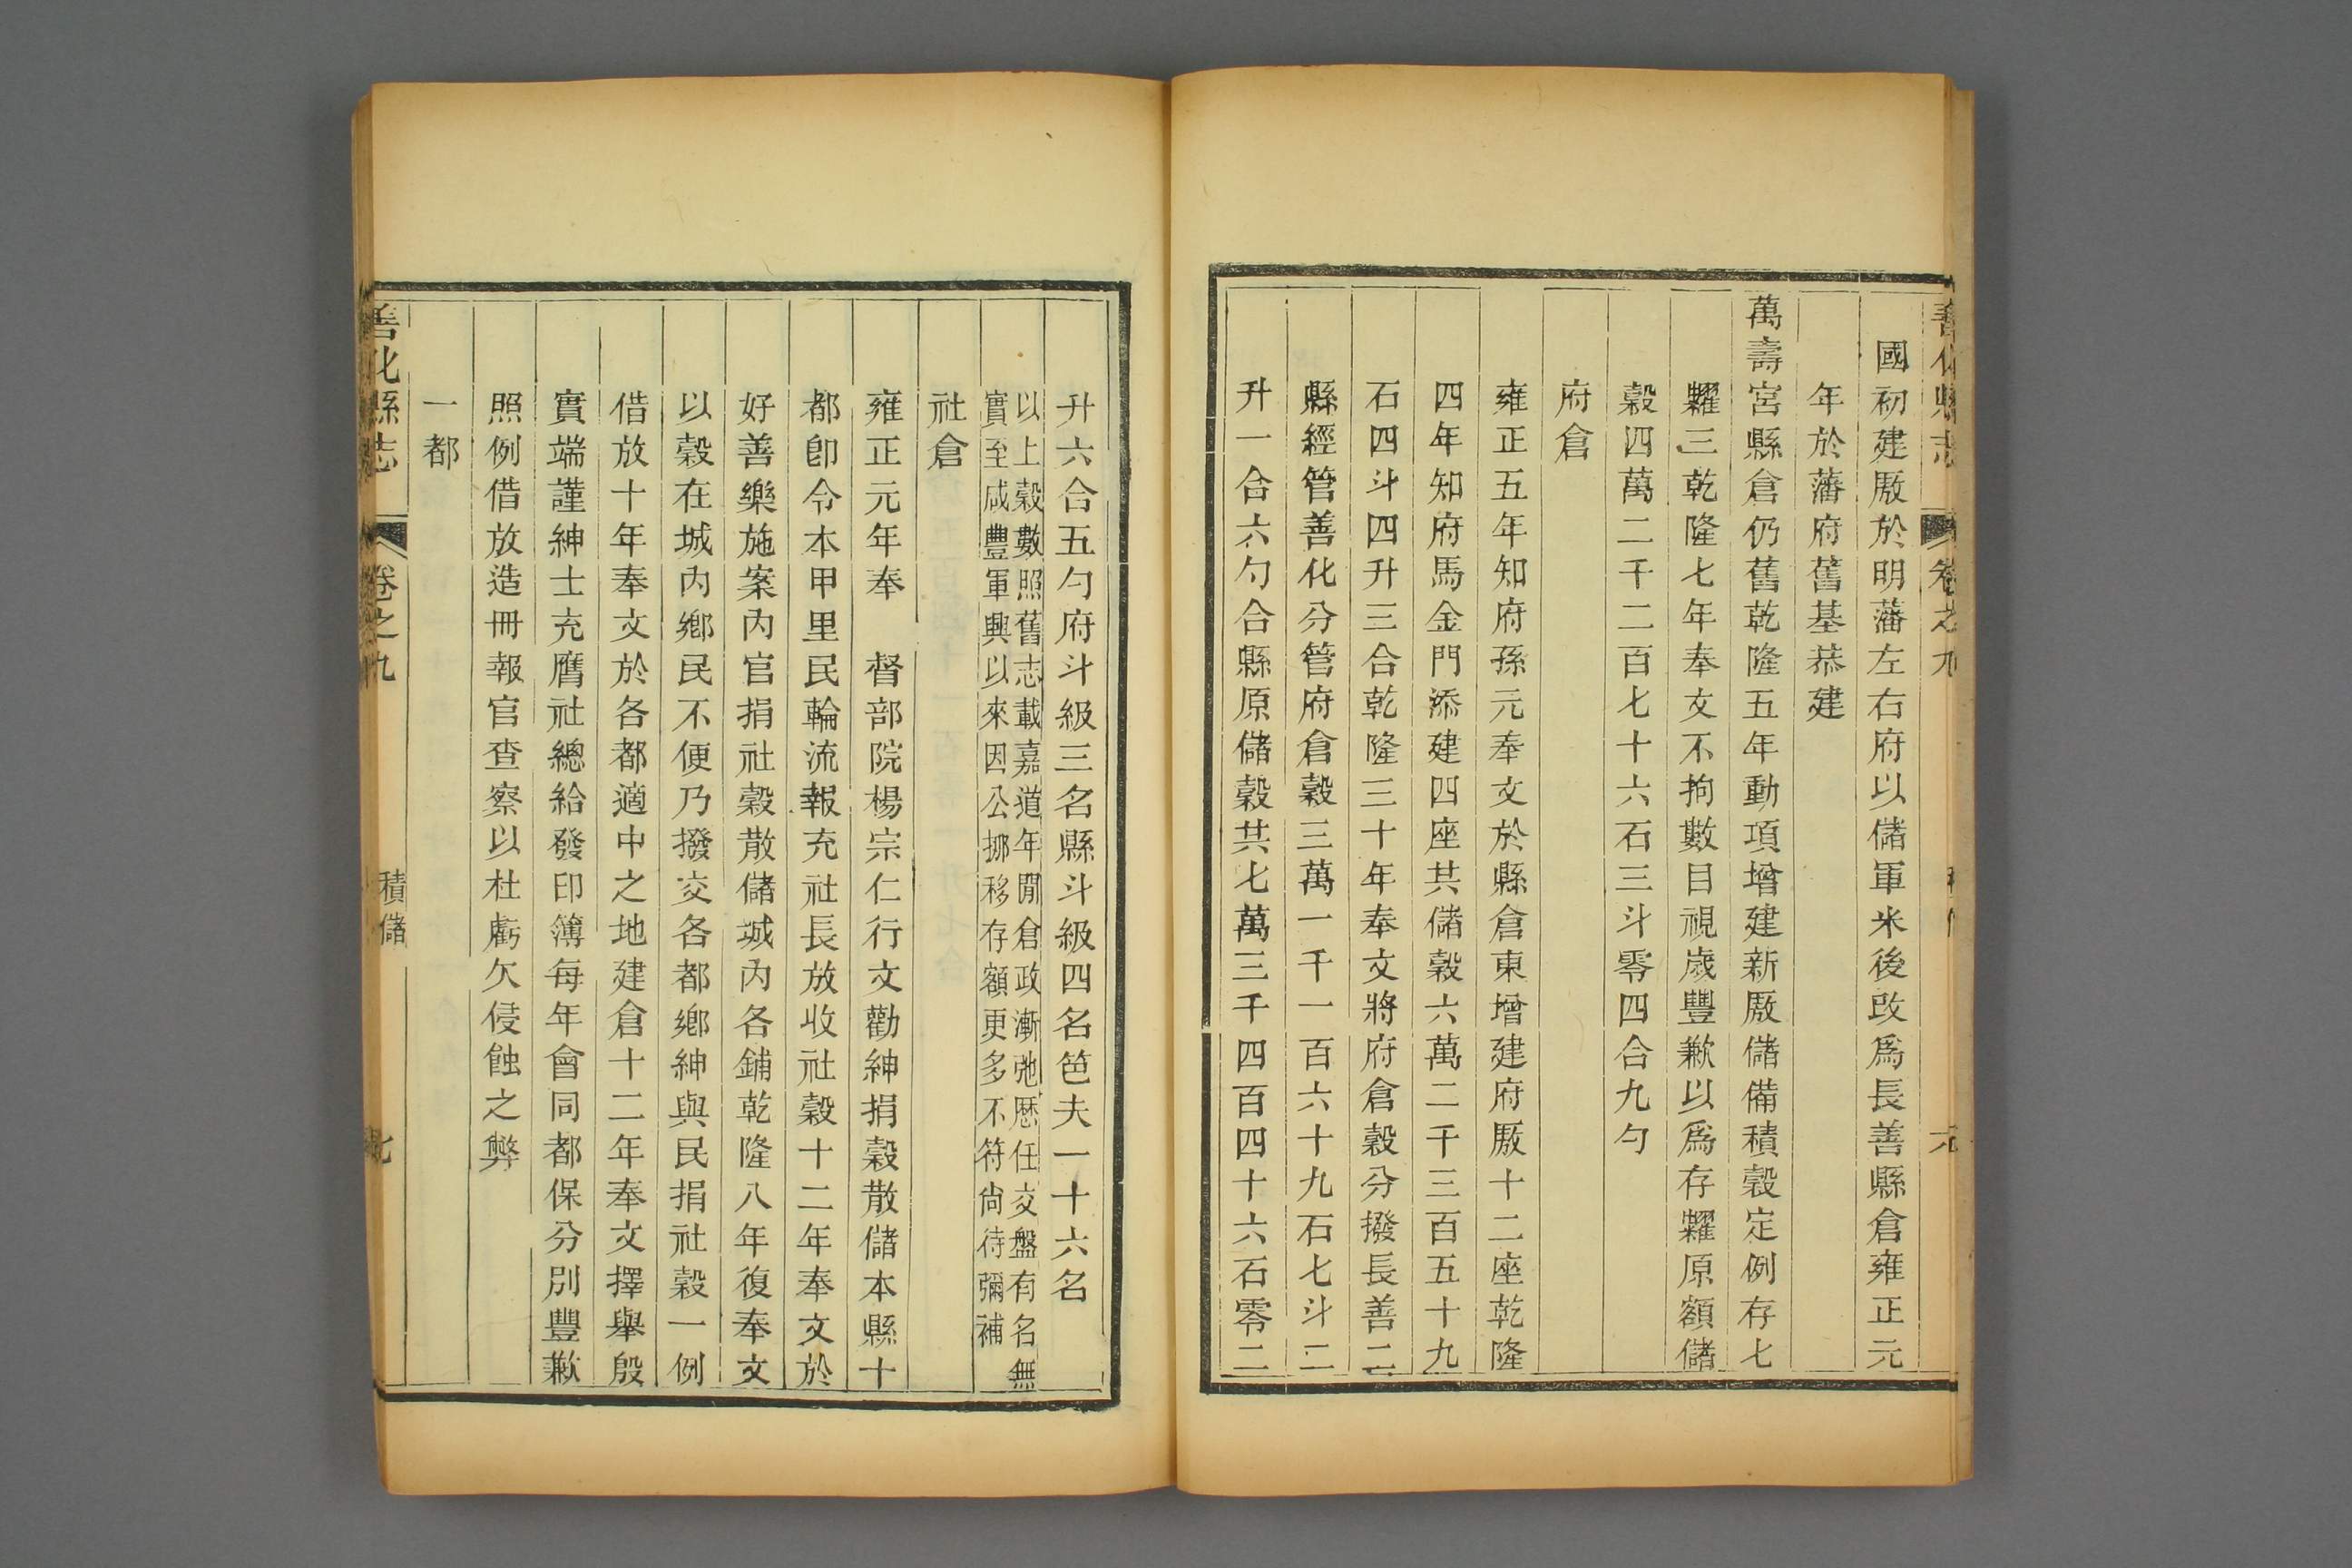 國初建厫於明藩左右府以儲軍米後改爲長善縣倉雍正元
年於藩府舊基恭建
萬壽宮縣倉仍舊乾隆五年動項增建新厫儲備積穀定例存七
糶三乾隆七年奉文不拘數目視歲豐歉以爲存糶原額儲
穀四萬二千二百七十六石三斗零四合九勺
府倉
雍正五年知府孫元奉文於縣倉東增建府厫十二座乾隆
四年知府馬金門添建四座共儲穀六萬二千三百五十九
石四斗四升三合乾隆三十年奉文將府倉穀分撥長善二
縣經管善化分管府倉穀三萬一千一百六十九石七斗二
升一合六勺合縣原儲穀共七萬三千四百四十六石零二
升六合五勺府斗級三名縣斗級四名笆夫一十六名
以上穀數照舊志載嘉道年閒倉政漸弛歴任交盤有名無
實至咸豐軍興以來因公挪移存額更多不符尙待彌補
社倉
雍正元年奉　督部院楊宗仁行文勸紳捐穀散儲本縣十
都卽令本甲里民輪流報充社長放收社穀十二年奉文於
好善樂施案內官捐社穀散儲城內各鋪乾隆八年復奉文
以穀在城內鄉民不便乃撥交各都鄉紳與民捐社穀一例
借放十年奉文於各都適中之地建倉十二年奉文擇舉殷
實端謹紳士充膺社總給發印簿每年會同都保分別豐歉
照例借放造冊報官查察以杜虧欠侵蝕之弊
一都
善化縣志
卷之九
積儲